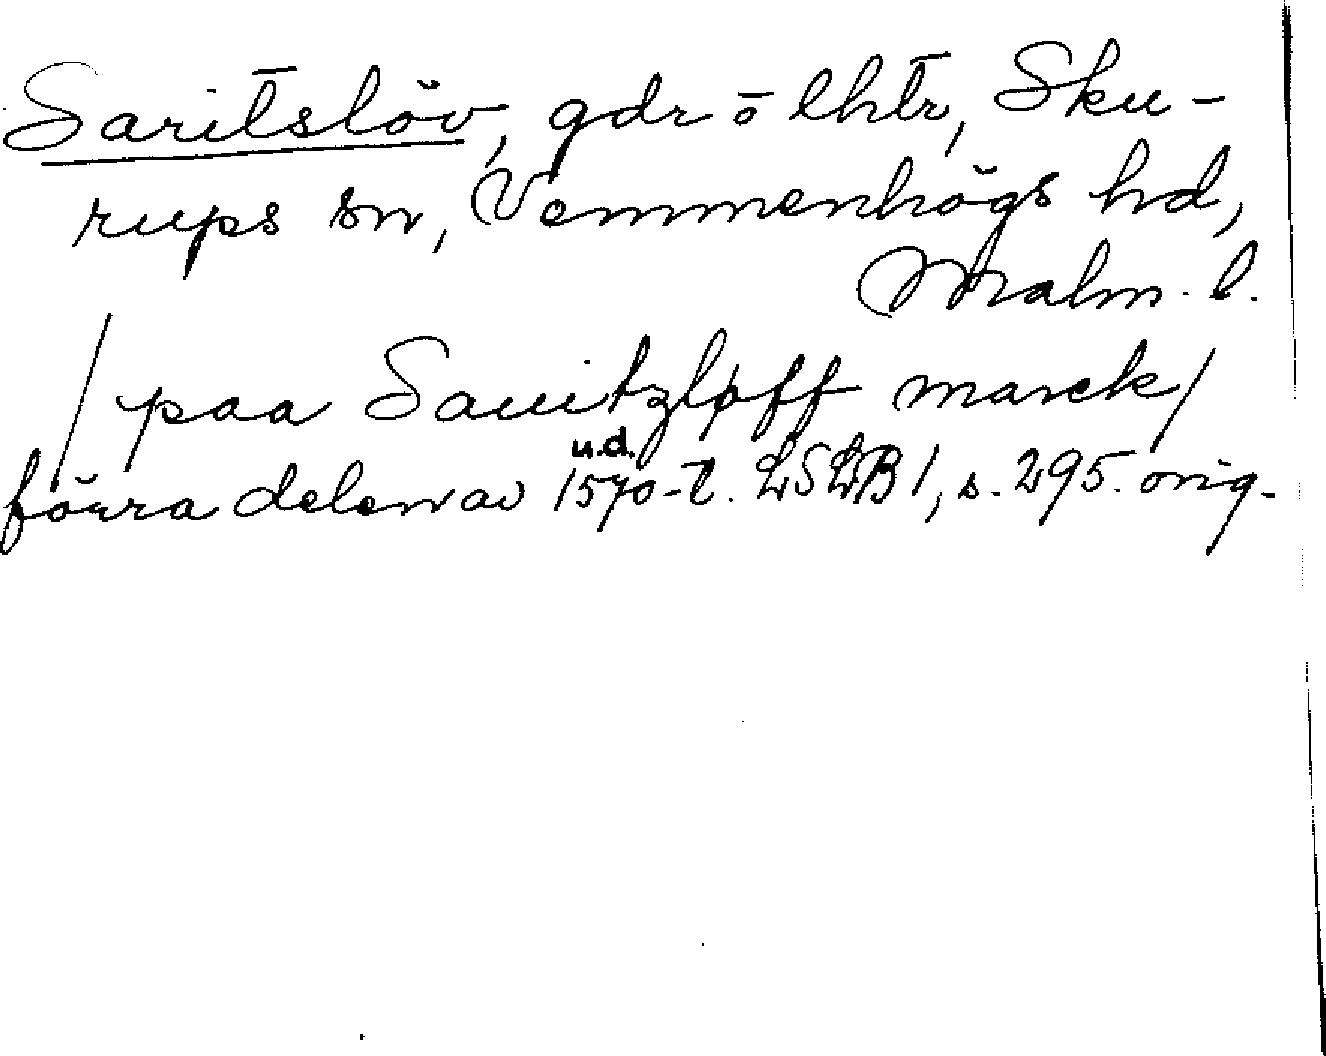 Saritslöv, gdr o lhtr, Sku-
rups sn, Vemmenhögs hd,
Malm. l.
/paa Sauitzløff marck/
u.d.
förra delen av 1570-t. LSLB 1, s. 295. orig.